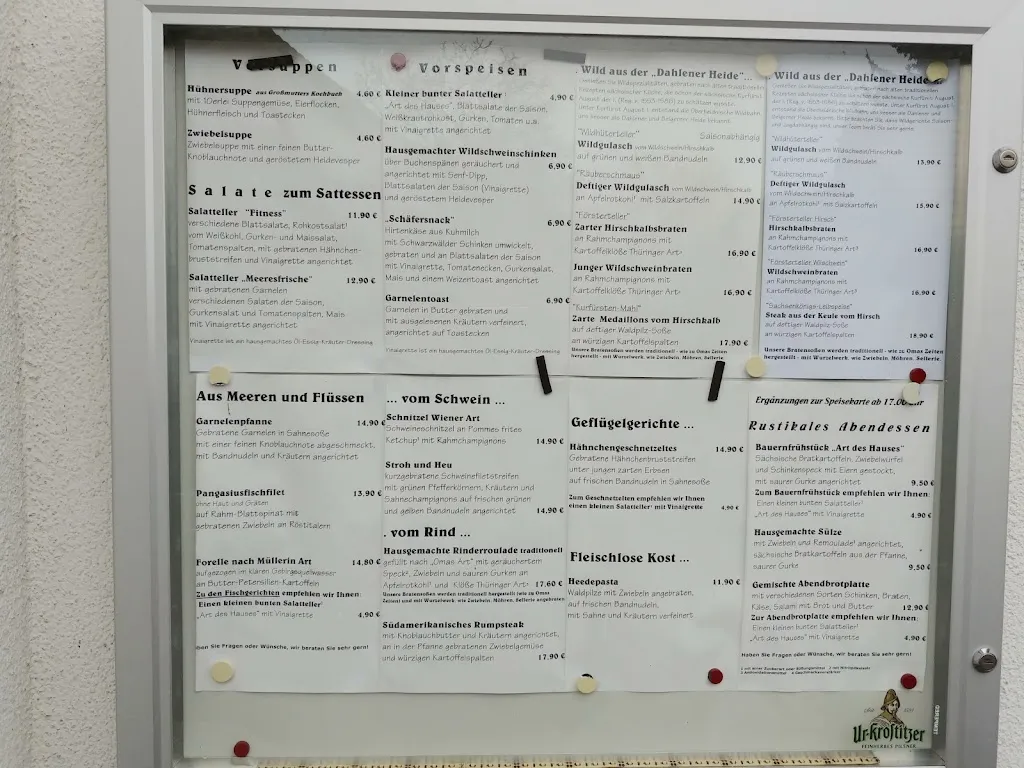 Vorsuppen
Hühnersuppe aus Großmutters Kochbuch 4,60 €
mit 10erlei Suppengemüse, Eierflocken,
Hühnerfleisch und Toastecken
Zwiebelsuppe 4,60 €
Zwiebelsuppe mit einer feinen Butter-
Knoblauchnote und geröstetem Heidevesper
Salate zum Sattessen
Salatteller "Fitness" 11,90 €
verschiedene Blattsalate, Rohkostsalat
vom Weißkohl, Gurken- und Maissalat,
Tomatenspalten, mit gebratenen Hähnchen-
bruststreifen und Vinaigrette angerichtet
Salatteller „Meeresfrische" 12,90 €
mit gebratenen Garnelen
verschiedenen Salaten der Saison,
Gurkensalat und Tomatenspalten, Mais
mit Vinaigrette angerichtet
Vinaigrette ist ein hausgemachtes Öl-Essig-Kräuter-Dressing
Vorspeisen
Kleiner bunter Salatteller 4,90 €
„Art des Hauses", Blattsalate der Saison,
Weißkrautrohkost, Gurken, Tomaten u.a.
mit Vinaigrette angerichtet
Hausgemachter Wildschweinschinken 6,90 €
über Buchenspänen geräuchert und
angerichtet mit Senf-Dipp,
Blattsalaten der Saison (Vinaigrette)
und geröstetem Heidevesper
„Schäfersnack" 6,90 €
Hirtenkäse aus Kuhmilch
mit Schwarzwälder Schinken umwickelt,
gebraten und an Blattsalaten der Saison
mit Vinaigrette, Tomatenecken, Gurkensalat,
Mais und einem Weizentoast angerichtet
Garnelentoast 6,90 €
Garnelen in Butter gebraten und
mit ausgelesenen Kräutern verfeinert,
angerichtet auf Toastecken
Vinaigrette ist ein hausgemachtes Öl-Essig-Kräuter-Dressing
. Wild aus der „Dahlener Heide"...
"Wildhüterteller" Saisonabhängig
Wildgulasch vom Wildschwein/Hirschkalb
auf grünen und weißen Bandnudeln 12,90 €
"Räuberschmaus"
Deftiger Wildgulasch vom Wildschwein/Hirschkalb
an Apfelrotkohl mit Salzkartoffeln 14,90 €
"Försterteller"
Zarter Hirschkalbsbraten
an Rahmchampignons mit
Kartoffelklöße Thüringer Art 16,90 €
Junger Wildschweinbraten
an Rahmchampignons mit
Kartoffelklöße Thüringer Art 16,90 €
"Kurfürsten-Mahl"
Zarte Medaillons vom Hirschkalb
auf deftiger Waldpilz-Soße
an würzigen Kartoffelspalten 17,90 €
Unsere Bratensoßen werden traditionell - wie zu Omas Zeiten
hergestellt - mit Wurzelwerk, wie Zwiebeln, Möhren, Sellerie.
. Wild aus der „Dahlener Heide
"Wildhüterteller"
Wildgulasch vom Wildschwein/Hirschkalb
auf grünen und weißen Bandnudeln 13,90 €
"Räuberschmaus"
Deftiger Wildgulasch
vom Wildschwein/Hirschkalb
an Apfelrotkohl mit Salzkartoffeln 15,90 €
"Försterteller Hirsch"
Hirschkalbsbraten
an Rahmchampignons mit
Kartoffelklöße Thüringer Art 16,90 €
"Försterteller Wildschwein"
Wildschweinbraten
an Rahmchampignons mit
Kartoffelklöße Thüringer Art 16,90 €
"Sachsenkönigs-Leibspeise"
Steak aus der Keule vom Hirsch
auf deftiger Waldpilz-Soße
an würzigen Kartoffelspalten 18,90 €
Unsere Bratensoßen werden traditionell - wie zu Omas Zeiten
hergestellt - mit Wurzelwerk, wie Zwiebeln, Möhren, Sellerie.
Aus Meeren und Flüssen
Garnelenpfanne 14,90 €
Gebratene Garnelen in Sahnesoße
mit einer feinen Knoblauchnote abgeschmeckt,
mit Bandnudeln und Kräutern angerichtet
Pangasiusfischfilet 13,90 €
ohne Haut und Gräten
auf Rahm-Blattspinat mit
gebratenen Zwiebeln an Röstitalern
Forelle nach Müllerin Art 14,80 €
aufgezogen im klaren Gebirgsquellwasser
an Butter-Petersilien-Kartoffeln
Zu den Fischgerichten empfehlen wir Ihnen:
Einen kleinen bunten Salatteller
„Art des Hauses" mit Vinaigrette 4,90 €
ben Sie Fragen oder Wünsche, wir beraten Sie sehr gern!
... vom Schwein ...
Schnitzel Wiener Art
Schweineschnitzel an Pommes frites
Ketchup mit Rahmchampignons 14,90 €
Stroh und Heu
kurzgebratene Schweinefiletstreifen
mit grünen Pfefferkörnern, Kräutern und
Sahnechampignons auf frischen grünen
und gelben Bandnudeln angerichtet 14,90 €
. vom Rind ...
Hausgemachte Rinderroulade traditionell
gefüllt nach „Omas Art" mit geräuchertem
Speck, Zwiebeln und sauren Gurken an
Apfelrotkohl und Klöße Thüringer Art 17,60 €
Unsere Bratensoßen werden traditionell hergestellt (wie zu Omas
Zeiten) und mit Wurzelwerk, wie Zwiebeln, Möhren, Sellerie angebraten
Südamerikanisches Rumpsteak
mit Knoblauchbutter und Kräutern angerichtet,
an in der Pfanne gebratenen Zwiebelgemüse
und würzigen Kartoffelspalten 17,90 €
Geflügelgerichte ...
Hähnchengeschnetzeltes 14,90 €
Gebratene Hähnchenbruststreifen
unter jungen zarten Erbsen
auf frischen Bandnudeln in Sahnesoße
Zum Geschnetzelten empfehlen wir Ihnen
einen kleinen Salatteller mit Vinaigrette 4,90 €
Fleischlose Kost ...
Heedepasta 11,90 €
Waldpilze mit Zwiebeln angebraten,
auf frischen Bandnudeln,
mit Sahne und Kräutern verfeinert
Ergänzungen zur Speisekarte ab 17.00 Uhr
Rustikales Abendessen
Bauernfrühstück „Art des Hauses"
Sächsische Bratkartoffeln, Zwiebelwürfel
und Schinkenspeck mit Eiern gestockt,
mit saurer Gurke angerichtet 9,50 €
Zum Bauernfrühstück empfehlen wir Ihnen:
Einen kleinen bunten Salatteller
„Art des Hauses" mit Vinaigrette 4,90 €
Hausgemachte Sülze
mit Zwiebeln und Remoulade angerichtet,
sächsische Bratkartoffeln aus der Pfanne,
saurer Gurke 9,50 €
Gemischte Abendbrotplatte
mit verschiedenen Sorten Schinken, Braten,
Käse, Salami mit Brot und Butter 12,90 €
Zur Abendbrotplatte empfehlen wir Ihnen:
Einen kleinen bunten Salatteller
„Art des Hauses" mit Vinaigrette 4,90 €
Haben Sie Fragen oder Wünsche, wir beraten Sie sehr gern!
Ur-Krostitzer
FEINHERBES PILSNER